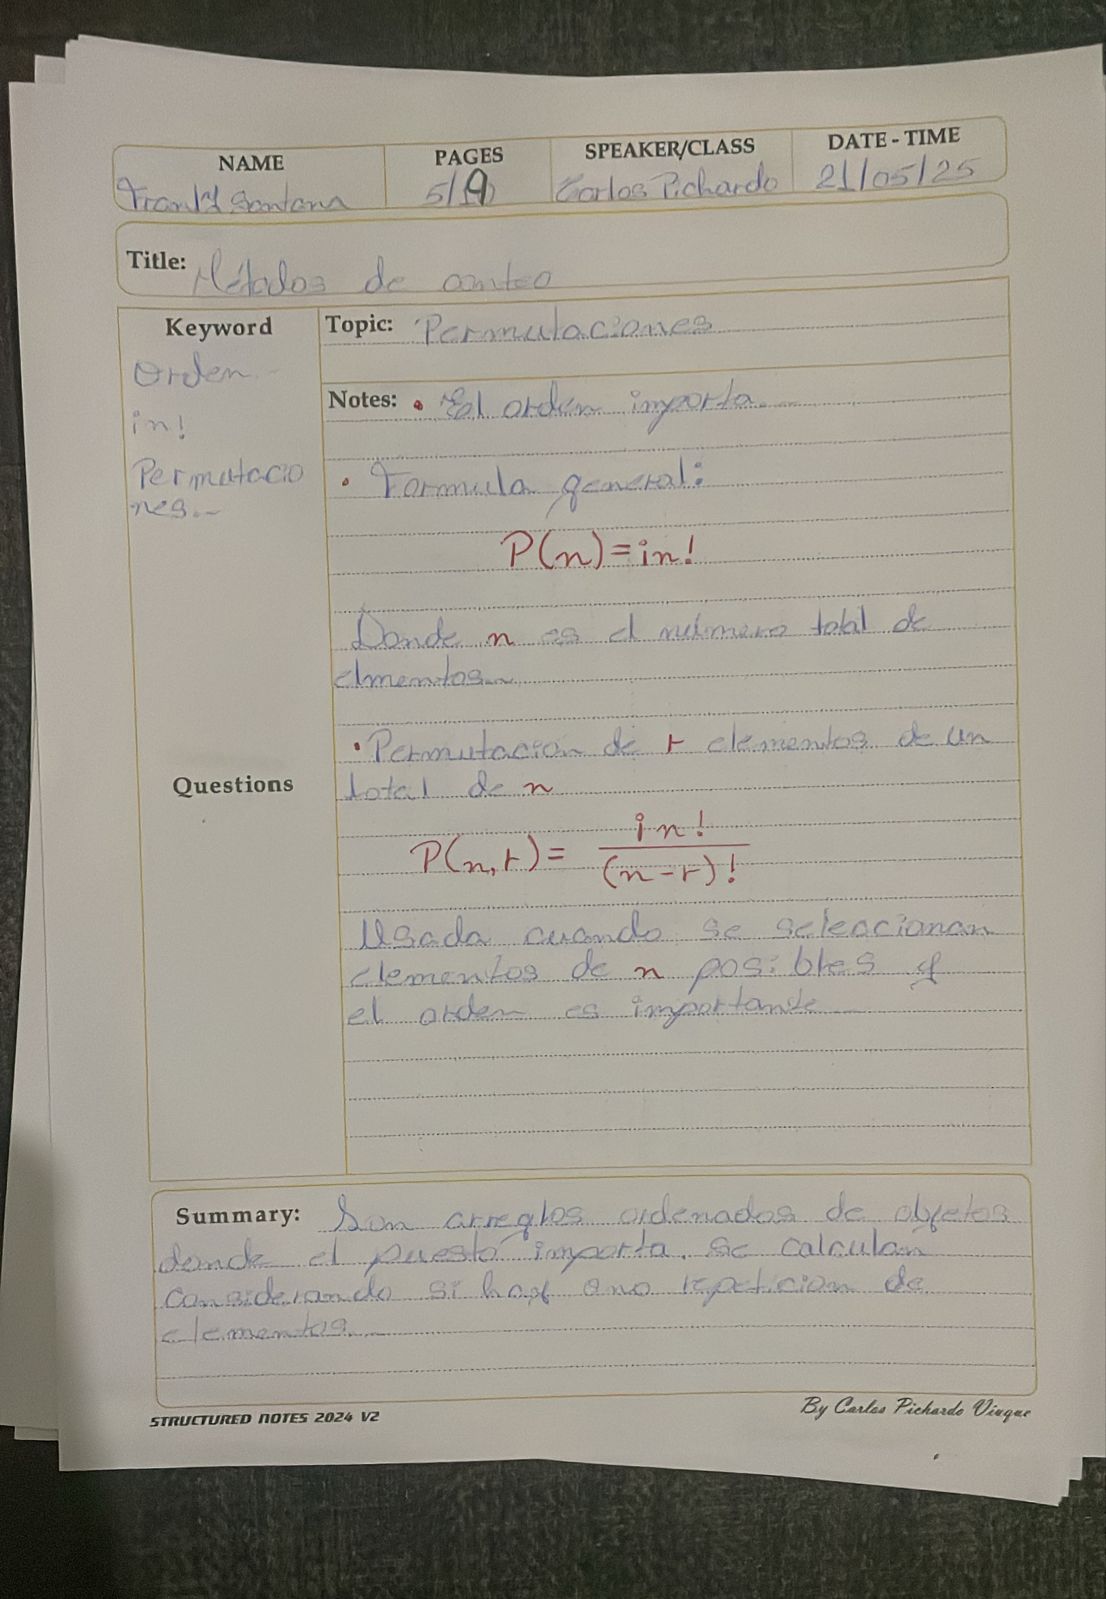 NAME PAGES SPEAKER/CLASS DATE - TIME
Frank Santana 5/ Carlos Pichardo 21/05/25
Title: Métodos de conteo
Keyword
Orden.-
in!
Permutacio
nes.-
Topic: Permutaciones
Notes: • El orden importa.-
• Formula general:
P(n)=in!
Donde n es el número total de
elmentos.-
• Permutación de r elementos de un
total de n
P(n,r)= in!
(n-r)!
Usada cuando se seleccionan
elementos de n posibles y
el orden es importante
Questions
Summary: Son arreglos ordenados de objetos
donde el puesto importa. se calculan
considerando si hay o no repeticion de
elementos.-
STRUCTURED NOTES 2024 V2
By Carlos Pichardo Viuque